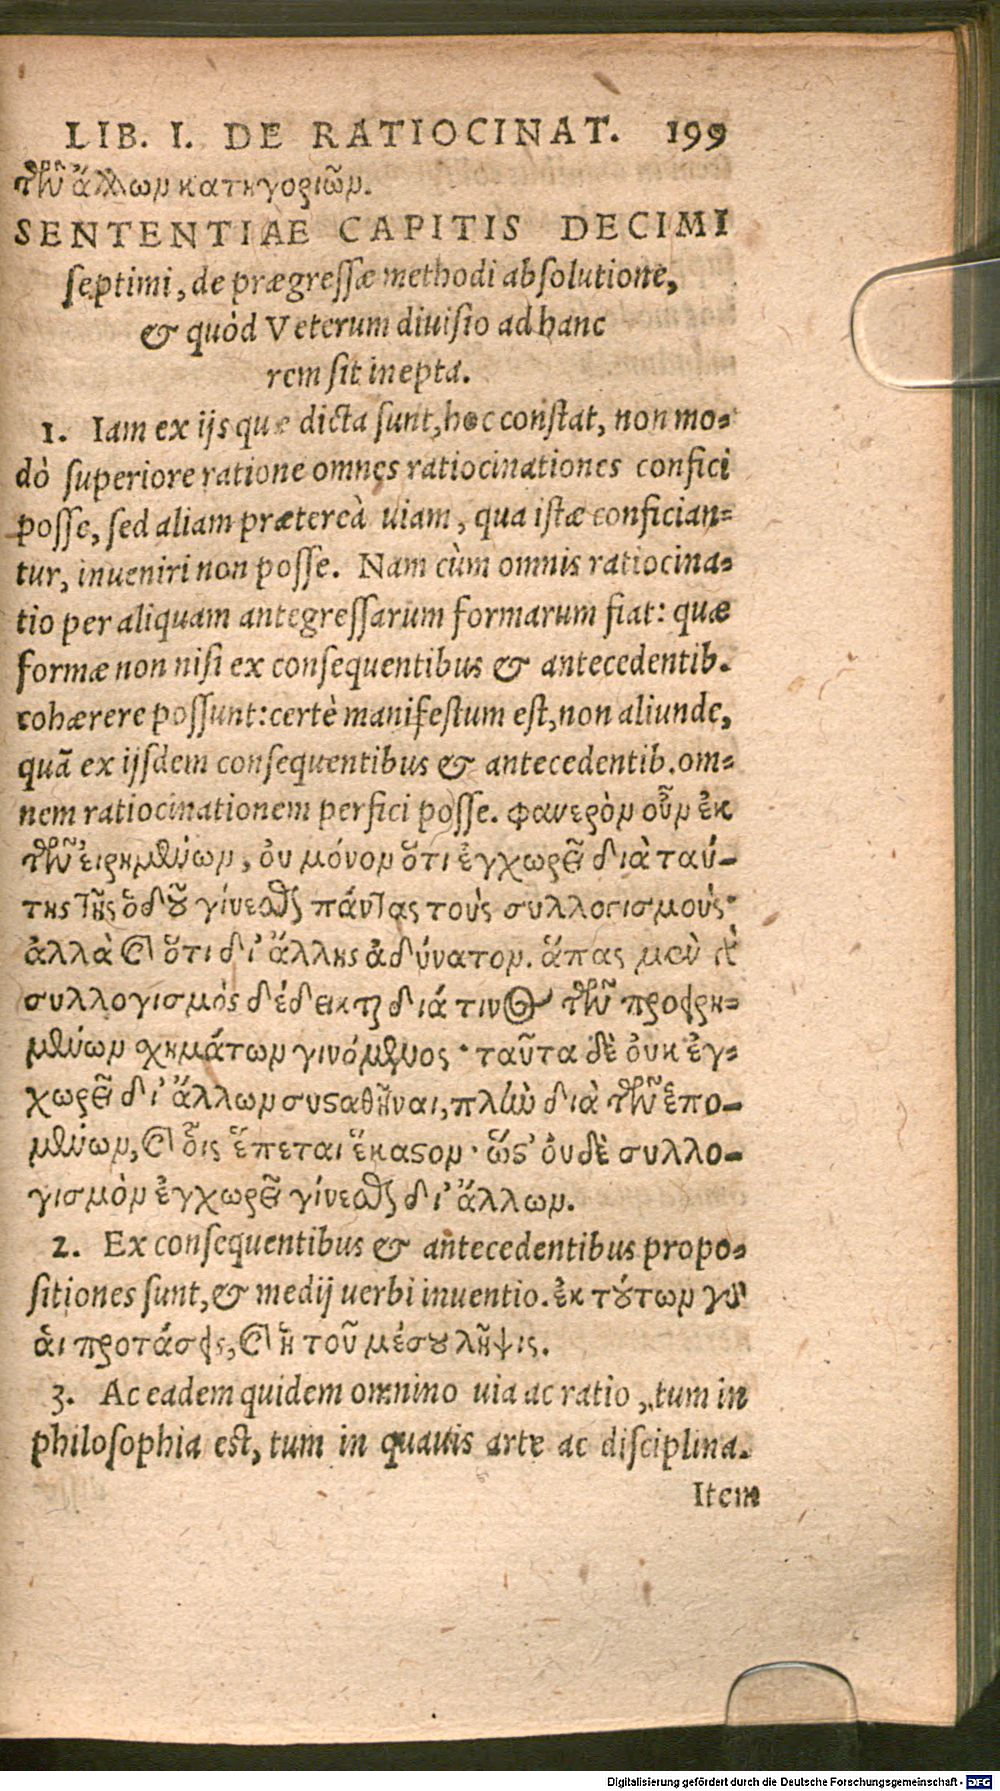 LIB. I. DE RATIOCINAT. 199
τῶν ἄλλων κατηγοριῶν.
SENTENTIAE CAPITIS DECIMI
septimi, de prægressæ methodi absolutione,
& quòd Veterum diuisio ad hanc
rem sit inepta.
1. Iam ex ijs quæ dicta sunt, hoc constat, non mo-
dò superiore ratione omnes ratiocinationes confici
posse, sed aliam prætereà uiam, qua istæ confician-
tur, inueniri non posse. Nam cùm omnis ratiocina-
tio per aliquam antegressarum formarum fiat: quæ
formæ non nisi ex consequentibus & antecedentib.
cohærere possunt: certè manifestum est, non aliunde,
quã ex ijsdem consequentibus & antecedentib. om-
nem ratiocinationem perfici posse. φανερὸν οὖν ἐκ
τῶν εἰρημένων, οὐ μόνον ὅτι ἐγχωρεῖ διὰ ταύ-
της τῆς ὁδοῦ γίνεσθαι πάντας τοὺς συλλογισμούς·
ἀλλὰ καὶ ὅτι δι' ἄλλης ἀδύνατον. ἅπας μὲν γὰρ
συλλογισμός δέδεικται διά τινος τῶν προειρη-
μένων σχημάτων γινόμενος· ταῦτα δὲ οὐκ ἐγ-
χωρεῖ δι' ἄλλων συσταθῆναι, πλὴν διὰ τῶν ἑπο-
μένων, καὶ οἷς ἕπεται ἕκαστον· ὥστ' οὐδὲ συλλο-
γισμὸν ἐγχωρεῖ γίνεσθαι δι' ἄλλων.
2. Ex consequentibus & antecedentibus propo-
sitiones sunt, & medij uerbi inuentio. ἐκ τούτων γὰρ
αἱ προτάσεις, καὶ ἡ τοῦ μέσου λῆψις.
3. Ac eadem quidem omnino uia ac ratio, tum in
philosophia est, tum in quauis arte ac disciplina.
Item
Digitalisierung gefördert durch die Deutsche Forschungsgemeinschaft - DFG